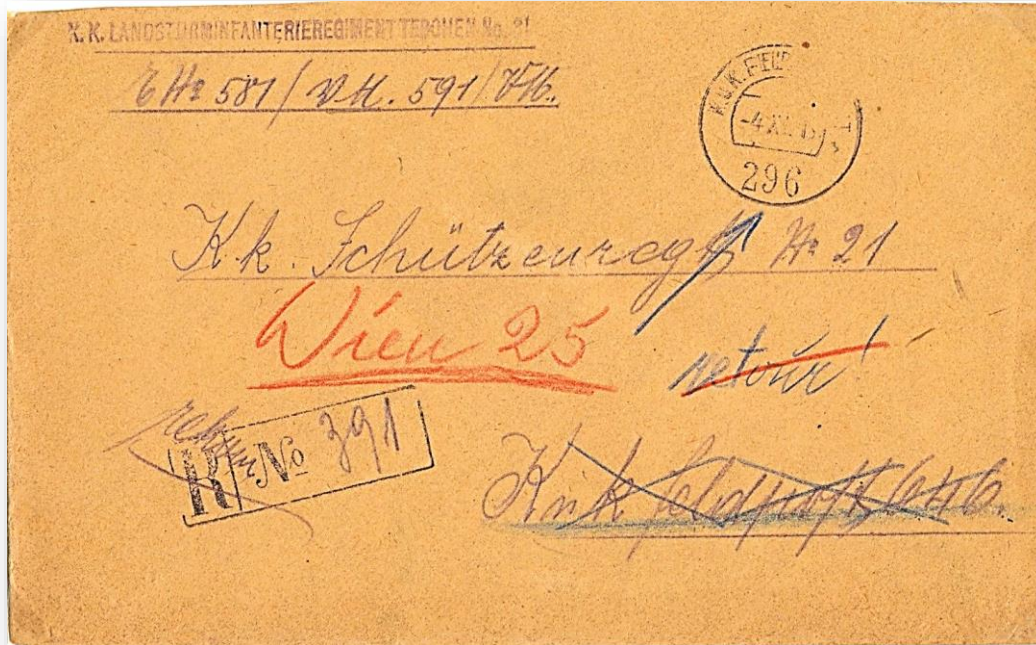 K. K. LANDSTURMINFANTERIEREGIMENT TESCHEN No. 31
E No 581/ 591/
K.U.K. FELDP
-4 XI
296
K.k. Schützenregt No 21
Wien 25
retour!
R No 391
K u k Feldpost 646.